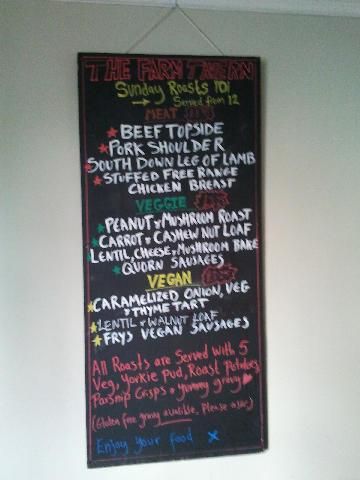 THE FARM TAVERN
Sunday Roasts
Served from 12
MEAT
BEEF TOPSIDE
PORK SHOULDER
SOUTH DOWN LEG OF LAMB
STUFFED FREE RANGE
CHICKEN BREAST
VEGGIE
PEANUT & MUSHROOM ROAST
CARROT & CASHEW NUT LOAF
LENTIL, CHEESE & MUSHROOM BAKE
QUORN SAUSAGES
VEGAN
CARAMELIZED ONION, VEG
& THYME TART
LENTIL & WALNUT LOAF
FRYS VEGAN SAUSAGES
All Roasts are Served with 5
Veg, Yorkie Pud, Roast Potatoes,
Parsnip Crisps & yummy gravy
(Gluten free gravy available. Please ask)
Enjoy your food X